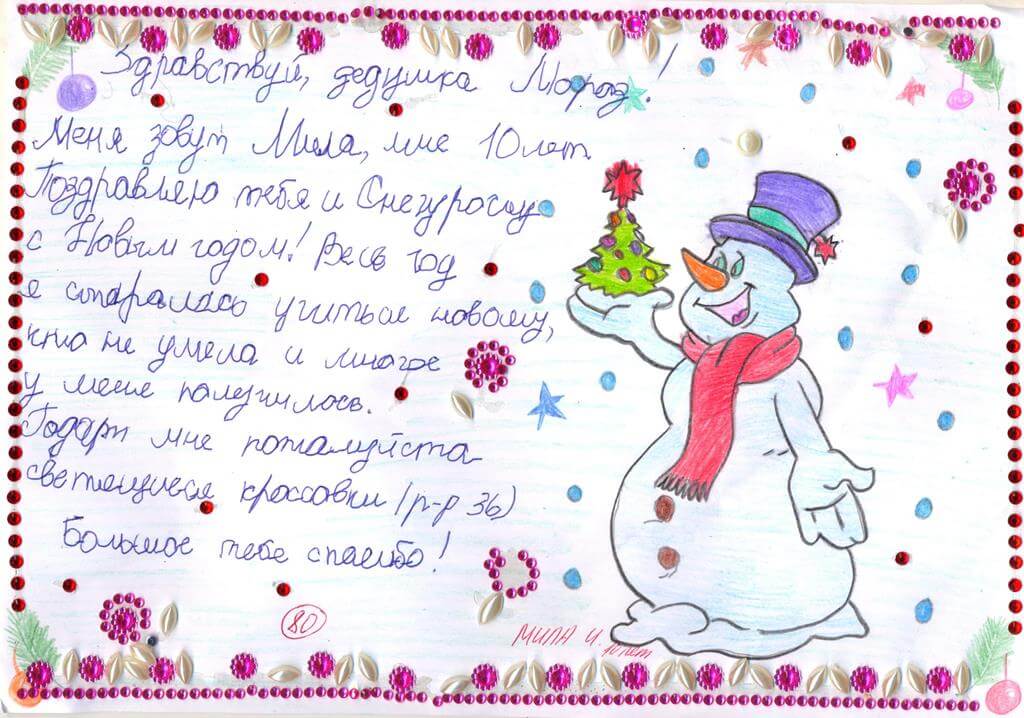 Здравствуй, дедушка Мороз!
Меня зовут Мила, мне 10 лет.
Поздравляю тебя и Снегурочку
с Новым годом! Весь год
я старалась учиться новому,
что не умела и многое
у меня получилось.
Подари мне пожалуйста
светящиеся кроссовки (р-р 36)
Большое тебе спасибо!
80
МИЛА И. 10 лет